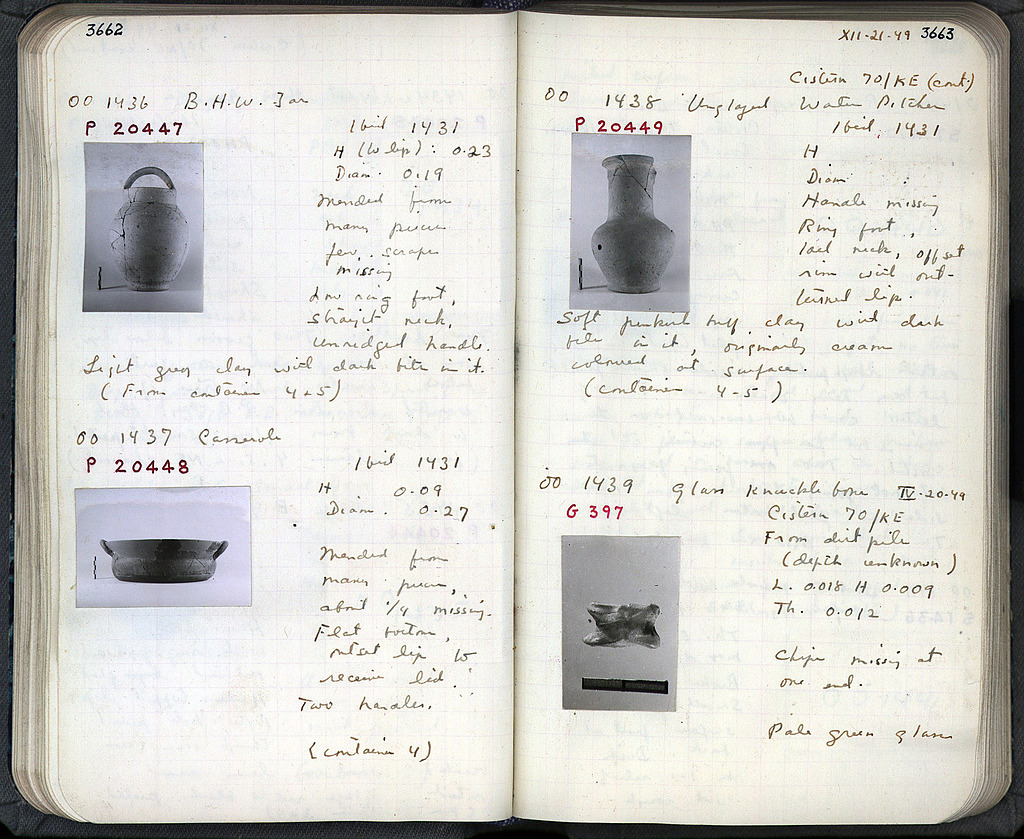 3662
OO 1436 B.H.W. Jar
P 20447
Ibid 1431
H (w lip): 0.23
Diam. 0.19
Mended from
many pieces
few scraps
missing
Low ring foot,
straight neck,
unridged handle.
Light grey clay with dark bits in it.
(From container 4+5)
OO 1437 Casserole
P 20448
Ibid 1431
H 0.09
Diam. 0.27
Mended from
many pieces,
about 1/4 missing.
Flat bottom,
outset lip to
receive lid.
Two handles.
(container 4)
XII-21-49 3663
Cistern 70/KE (cont)
OO 1438 Unglazed Water Pitcher
P 20449
Ibid, 1431
H
Diam :
Handle missing
Ring foot,
tall neck, offset
rim with out-
turned lip.
Soft pinkish buff clay with dark
bits in it, originally cream
coloured at surface.
(container 4-5)
OO 1439 Glass Knuckle bone IV-20-49
G 397
Cistern 70/KE
From dirt pile
(depth unknown)
L. 0.018 H 0.009
Th. 0.012
Chips missing at
one end.
Pale green glass